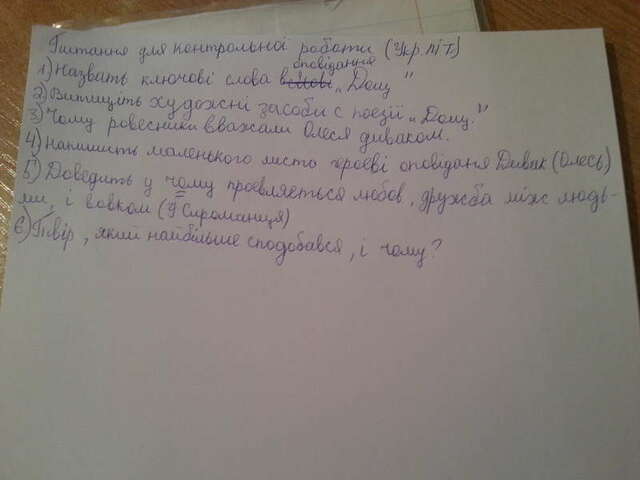 Питання для контрольної роботи (Укр. літ.)
оповідання
1) Назвать ключові слова в слові „Дощ"
2) Випишіть художні засоби с поезії „Дощ."
3) Чому ровесники вважали Олеся диваком.
4) Напишить маленького листа героєві оповіданя Дивак (Олесь)
5) Доведить у чому проявляється любов, дружба між людь-
ми, і вовком (У Сіроманця)
6) Твір, який найбільше сподобався, і чому?